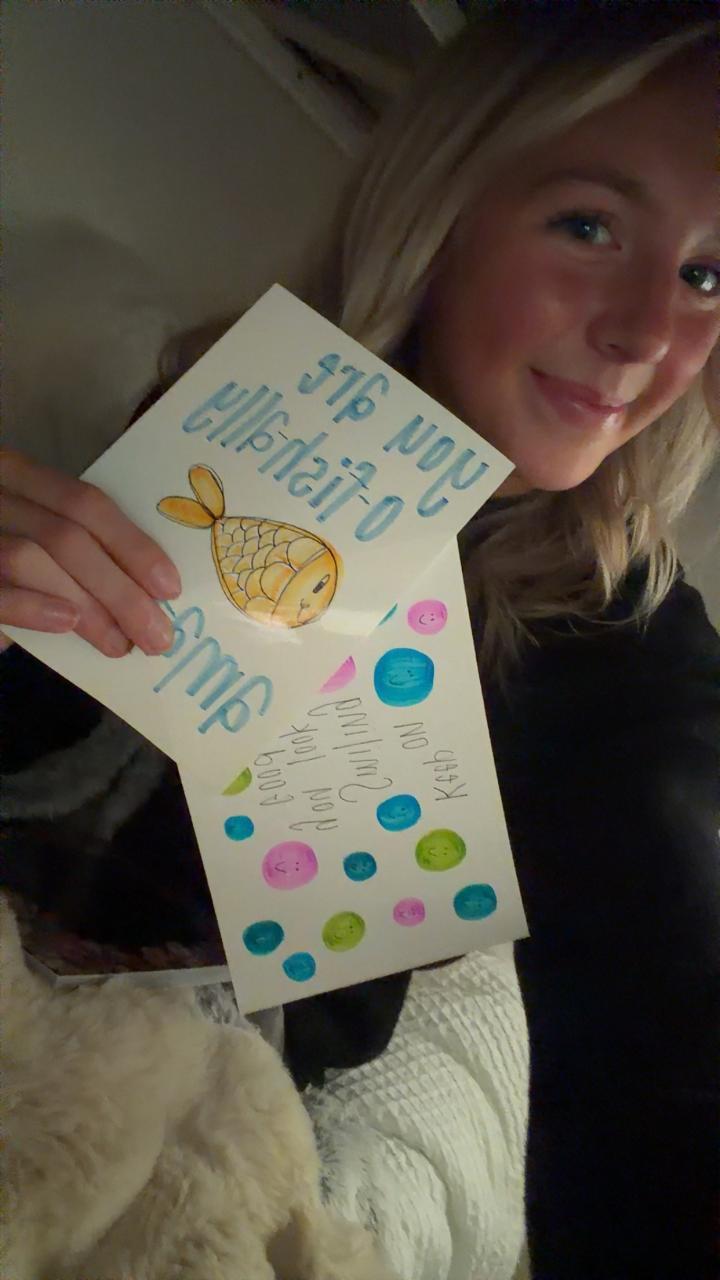 You are
O-fish-ally
Keep
on
Smiling
you look
good